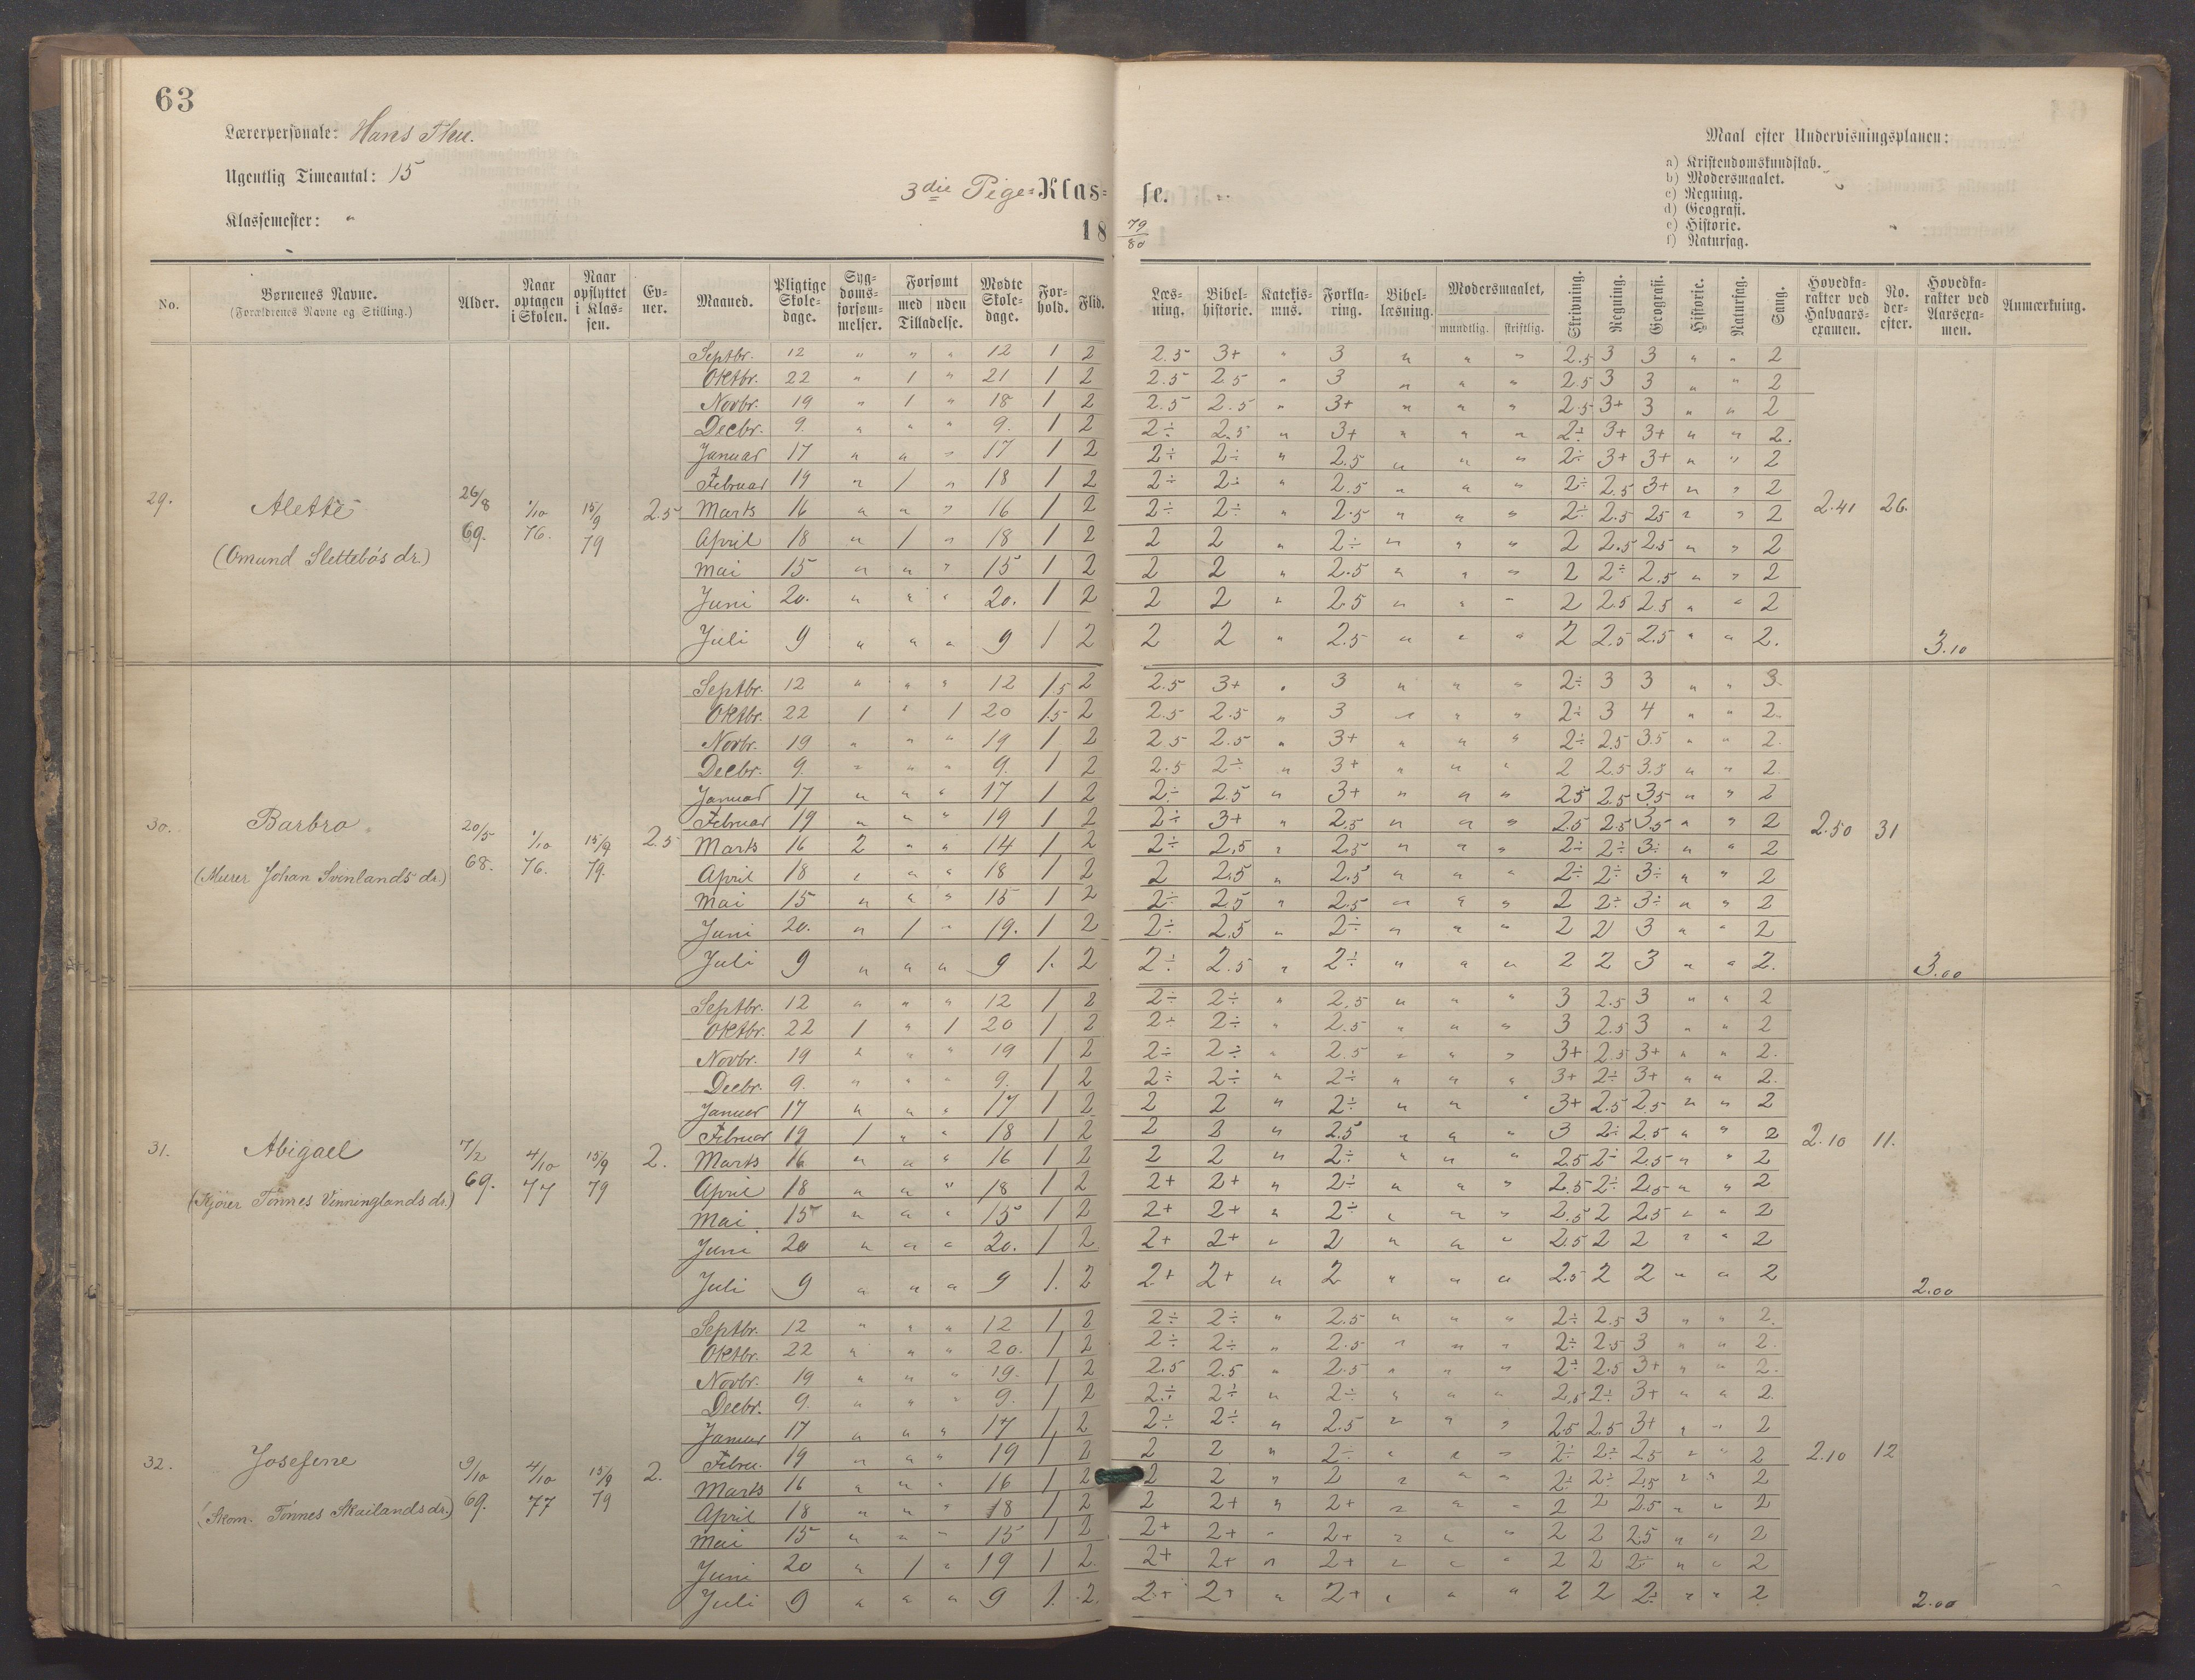 63
Lærerpersonale: Hans Thu.
Ugentlig Timeantal: 15
Klassemester: "
3die Pige-Klas=
se.
18 79/80
Maal efter Undervisningsplanen:
a) Kristendomskundskab.
b) Modersmaalet.
c) Regning.
d) Geografi.
e) Historie.
f) Naturfag.
No. | Børnenes Navne. (Forældrenes Navne og Stilling.) | Alder. | Naar optagen i Skolen. | Naar opflyttet i Klassen. | Evner. | Maaned. | Pligtige Skoledage. | Sygdomsforsømmelser. | Forsømt med Tilladelse. | uden Tilladelse. | Mødte Skoledage. | Forhold. | Flid. | Læsning. | Bibelhistorie. | Katekismus. | Forklaring. | Bibellæsning. | Modersmaalet, mundtlig. | skriftlig. | Skrivning. | Regning. | Geografi. | Historie. | Naturfag. | Sang. | Hovedkarakter ved Halvaarsexamen. | No. derefter. | Hovedkarakter ved Aarsexamen. | Anmærkning.
29. Alette (Omund Slettebøs dr.) 26/8 69. 1/10 76. 15/9 79 2.5
Septbr. 12 " " " 12 1 2 2.5 3+ " 3 " " " 2.5 3 3 " " 2
Oktbr. 22 " 1 " 21 1 2 2.5 2.5 " 3 " " " 2.5 3 3 " " 2
Novbr. 19 " 1 " 18 1 2 2.5 2.5 " 3+ " " " 2.5 3+ 3 " " 2
Decbr. 9. " " " 9. 1 2 2÷ 2.5 " 3+ " " " 2÷ 3+ 3+ " " 2.
Januar 17 " " " 17 1 2 2÷ 2÷ " 2.5 " " " 2÷ 3+ 3+ " " 2
Februar 19 " 1 " 18 1 2 2÷ 2÷ " 2.5 " " " 2÷ 2.5 3+ " " 2
Marts 16 " " " 16 1 2 2÷ 2÷ " 2.5 " " " 2÷ 2.5 25 " " 2
April 18 " 1 " 18 1 2 2 2 " 2÷ " " " 2 2.5 2.5 " " 2
Mai 15 " " " 15 1 2 2 2 " 2.5 " " " 2 2÷ 2.5 " " 2
Juni 20. " " " 20. 1 2 2 2 " 2.5 " " " 2 2.5 2.5 " " 2
Juli 9 " " " 9 1 2 2 2 " 2.5 " " " 2 2.5 2.5 " " 2.
2.41 26. 3.10
30. Barbro (Murer Johan Svinlands dr.) 20/5 68. 1/10 76. 15/9 79. 2.5
Septbr. 12 " " " 12 1.5 2 2.5 3+ " 3 " " " 2÷ 3 3 " " 3.
Oktbr. 22 1 " 1 20 1.5 2 2.5 2.5 " 3 " " " 2÷ 3 4 " " 2.
Novbr. 19 " " " 19 1 2 2.5 2.5 " 3+ " " " 2÷ 2.5 3.5 " " 2.
Decbr. 9. " " " 9. 1 2 2.5 2÷ " 3+ " " " 2 2.5 3.5 " " 2.
Januar 17 " " " 17 1 2 2÷ 2.5 " 3+ " " " 25 2.5 3.5 " " 2
Februar 19 " " " 19 1 2 2÷ 3+ " 2.5 " " " 2.5 2.5 3.5 " " 2
Marts 16 2 " " 14 1 2 2÷ 2.5 " 2.5 " " " 2÷ 2÷ 3÷ " " 2
April 18 " " " 18 1 2 2 2.5 " 2.5 " " " 2÷ 2÷ 3÷ " " 2
Mai 15 " " " 15 1 2 2÷ 2.5 " 2.5 " " " 2 2÷ 3÷ " " 2
Juni 20. " 1 " 19. 1 2 2÷ 2.5 " 2÷ " " " 2 2 3 " " 2
Juli 9 " " " 9 1. 2 2÷ 2.5 " 2÷ " " " 2 2 3 " " 2.
2.50 31 3.00
31. Abigael (Kjører Tønnes Vinninglands dr.) 7/2 69. 4/10 77 15/9 79 2.
Septbr. 12 " " " 12 1 2 2÷ 2÷ " 2.5 " " " 3 2.5 3 " " 2
Oktbr. 22 1 " 1 20 1 2 2÷ 2÷ " 2.5 " " " 3 2.5 3 " " 2
Novbr. 19 " " " 19 1 2 2÷ 2÷ " 2.5 " " " 3+ 2.5 3+ " " 2.
Decbr. 9. " " " 9. 1 2 2÷ 2÷ " 2÷ " " " 3+ 2÷ 3+ " " 2.
Januar 17 " " " 17 1 2 2 2 " 2÷ " " " 3+ 2.5 2.5 " " 2
Februar 19 1 " " 18 1 2 2 2 " 2.5 " " " 3 2÷ 2.5 " " 2
Marts 16 " " " 16 1 2 2 2 " 2÷ " " " 2.5 2÷ 2.5 " " 2
April 18 " " " 18 1 2 2+ 2+ " 2÷ " " " 2.5 2÷ 2.5 " " 2
Mai 15 " " " 15 1 2 2+ 2+ " 2÷ " " " 2.5 2 2.5 " " 2
Juni 20 " " " 20. 1 2 2+ 2+ " 2 " " " 2.5 2 2 " " 2
Juli 9 " " " 9 1. 2 2+ 2+ " 2 " " " 2.5 2 2 " " 2
2.10 11. 2.00
32. Josefine (Skom. Tønnes Skailands dr.) 9/10 69. 4/10 77 15/9 79 2.
Septbr. 12 " " " 12 1 2 2÷ 2÷ " 2.5 " " " 2÷ 2.5 3 " " 2.
Oktbr. 22 " " " 20. 1 2 2÷ 2÷ " 2.5 " " " 2÷ 2.5 3 " " 2.
Novbr. 19 " " " 19. 1 2 2.5 2.5 " 2.5 " " " 2÷ 2.5 3+ " " 2.
Decbr. 9. " " " 9. 1 2 2÷ 2÷ " 2÷ " " " 2.5 2÷ 3+ " " 2.
Januar 17 " " " 17 1 2 2÷ 2÷ " 2.5 " " " 2.5 2.5 3+ " " 2
Febru. 19 " " " 19 1 2 2 2 " 2÷ " " " 2÷ 2÷ 2.5 " " 2
Marts 16 " " " 16 1 2 2 2 " 2 " " " 2÷ 2÷ 2.5 " " 2
April 18 " " " 18 1 2 2 2+ " 2+ " " " 2 2 2.5 " " 2
Mai 15 " " " 15 1 2 2+ 2+ " 2+ " " " 2 2 2.5 " " 2
Juni 20 " 1 " 19 1 2. 2+ 2+ " 2+ " " " 2 2 2÷ " " 2
Juli 9 " " " 9 1. 2. 2+ 2+ " 2+ " " " 2 2 2÷ " " 2
2.10 12 2.00